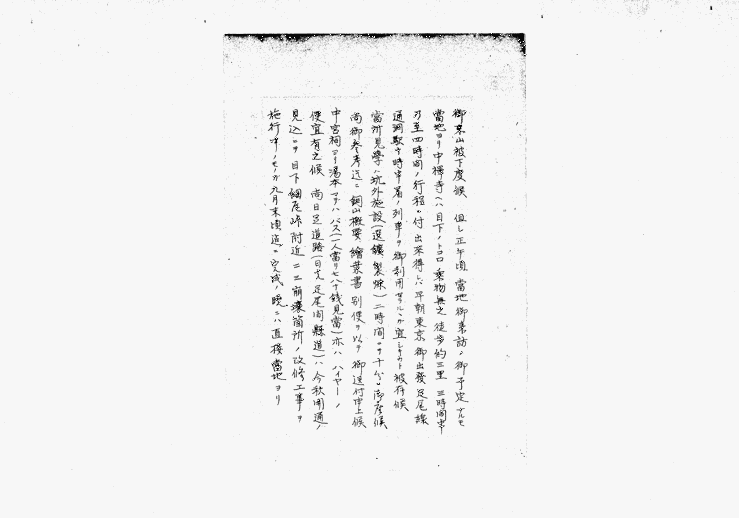 御来山被下度候 但し正午頃當地御来訪ノ御予定ナルモ
當地ヨリ中禅寺ヘハ目下ノトコロ乗物無之徒歩約三里 三時間半
乃至四時間ノ行程ニ付 出来得レバ早朝東京御出發足尾線
通洞駅 時半着ノ列車ヲ御利用 宜シキカト被存候
當所見學ハ坑外施設(選鑛 製煉)二時間ニテ十分ニ御座候
尚御参考迄ニ銅山概要 繪葉書 別便ヲ以テ御送付申上候
中宮祠ヨリ湯本マデハバス(一人當リ七八十銭見當)亦ハハイヤーノ
便宜有之候 尚日足道路(日光足尾間縣道)ハ今秋開通ノ
見込ニテ目下細尾峠附近ニ二三崩壊箇所ノ改修工事ヲ
施行中ノモノガ九月末頃迄ニ完成ノ暁ニハ直接當地ヨリ